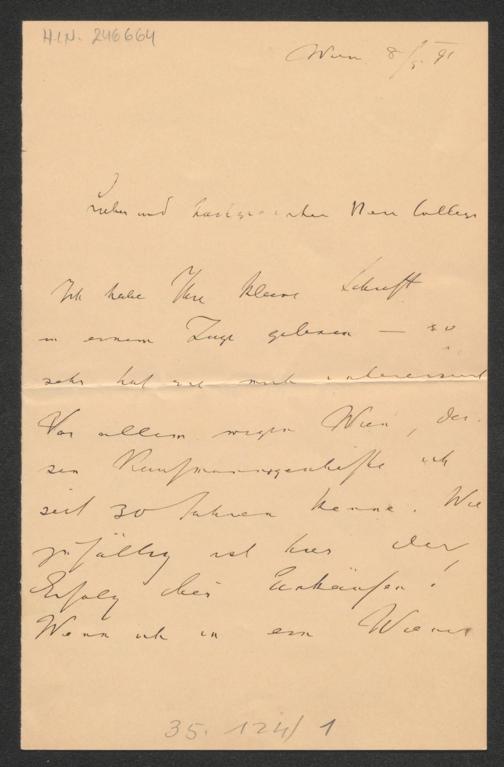 H.I.N. 246664
Wien 8/5. 91
Lieber und hochgeehrter Herr College
Ich habe Ihre kleine Schrift
in einem Zuge gelesen — so
sehr hat sie mich interessirt
Vor allem wegen Wien, des-
sen Kaufmannsgeschäfte ich
seit 30 Jahren kenne. Wie
zufällig ist hier der
Erfolg des Einkäufen!
Wenn ich in ein Wiener
35. 124/1